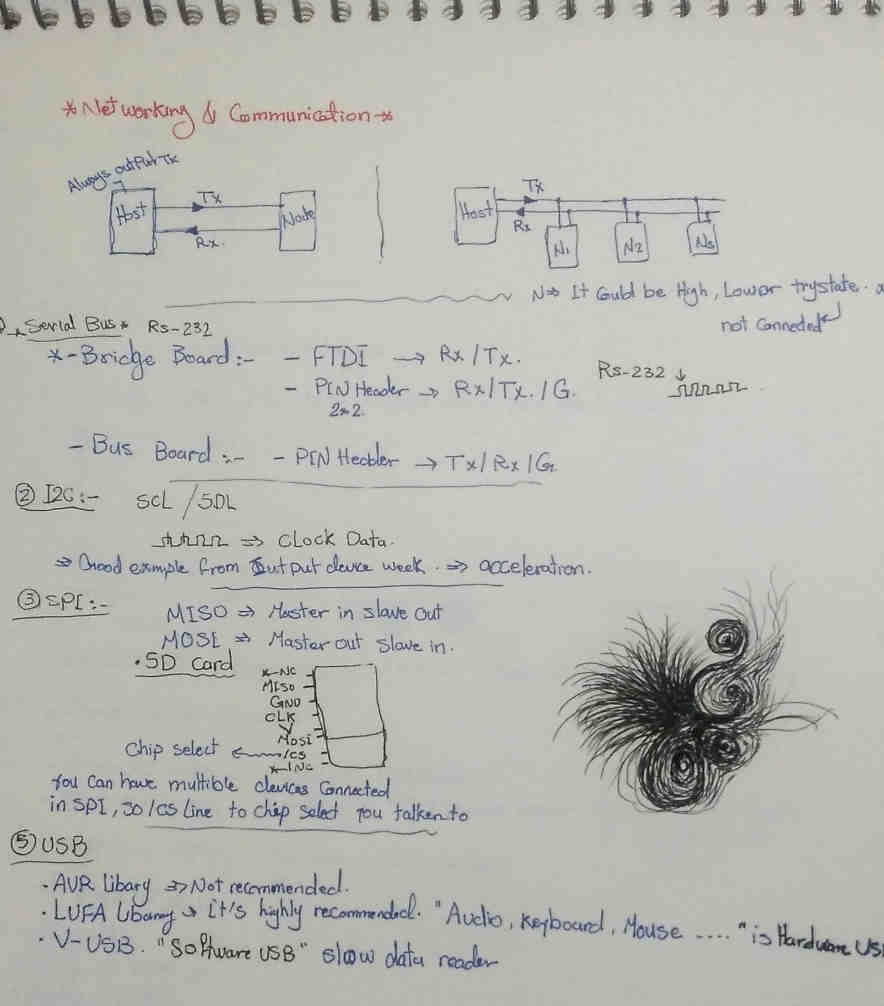 * Networking & Communication *
Always output Tx
Host Tx Rx. Node
Host Tx Rx N1 N2 N3
N⇒ It Could be High, Lower trystate.
not Conneded
* Serial Bus * Rs-232
*-Bridge Board:- - FTDI → Rx/Tx.
- PIN Header → Rx/Tx./G.
2*2.
Rs-232 ↓
- Bus Board:- - PIN Heabler → Tx/Rx/G
② I2C:- SCL / SDL
⇒ CLock Data.
⇒ Good exmple from Output device week. ⇒ acceleration.
③ SPI:-
MISO ⇒ Master in slave Out
MOSI ⇒ Master out Slave in.
• SD Card
*-NC
MISO
GND
CLK
V
Mosi
Chip select ← /CS
*-INC
You Can have multible devices Connected
in SPI, so /CS Line to chip Select you talken to
⑤ USB
• AVR Libary ⇒ Not recommended.
• LUFA Libarry → it's highly recommended. "Audio, Keyboard, Mouse ...." is Hardware US
• V-USB. "Software USB" slow data reader